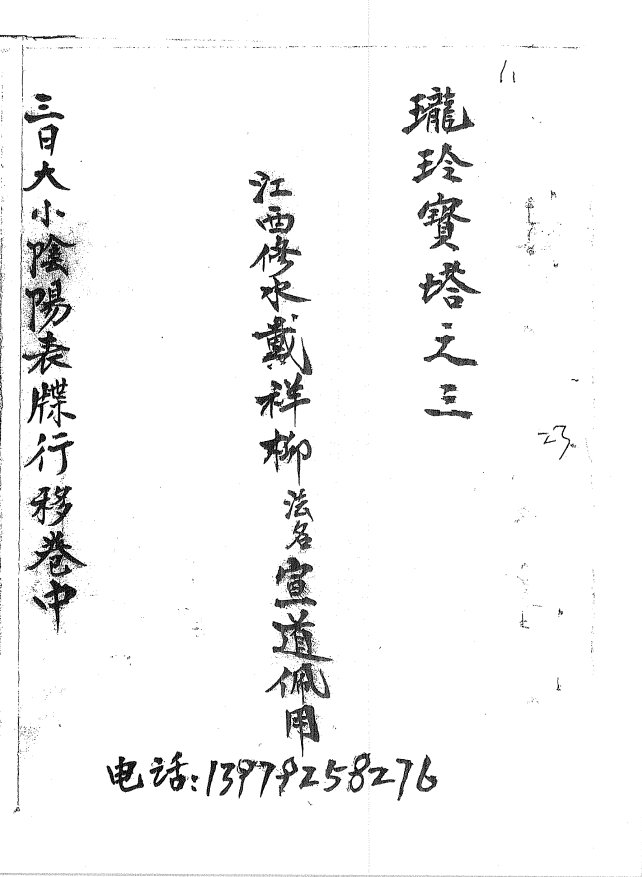 瓏玲寶塔之三
江西修水戴祥柳法名宣道佩用
三日大小陰陽表牒行移卷中
电话:13979258276
23